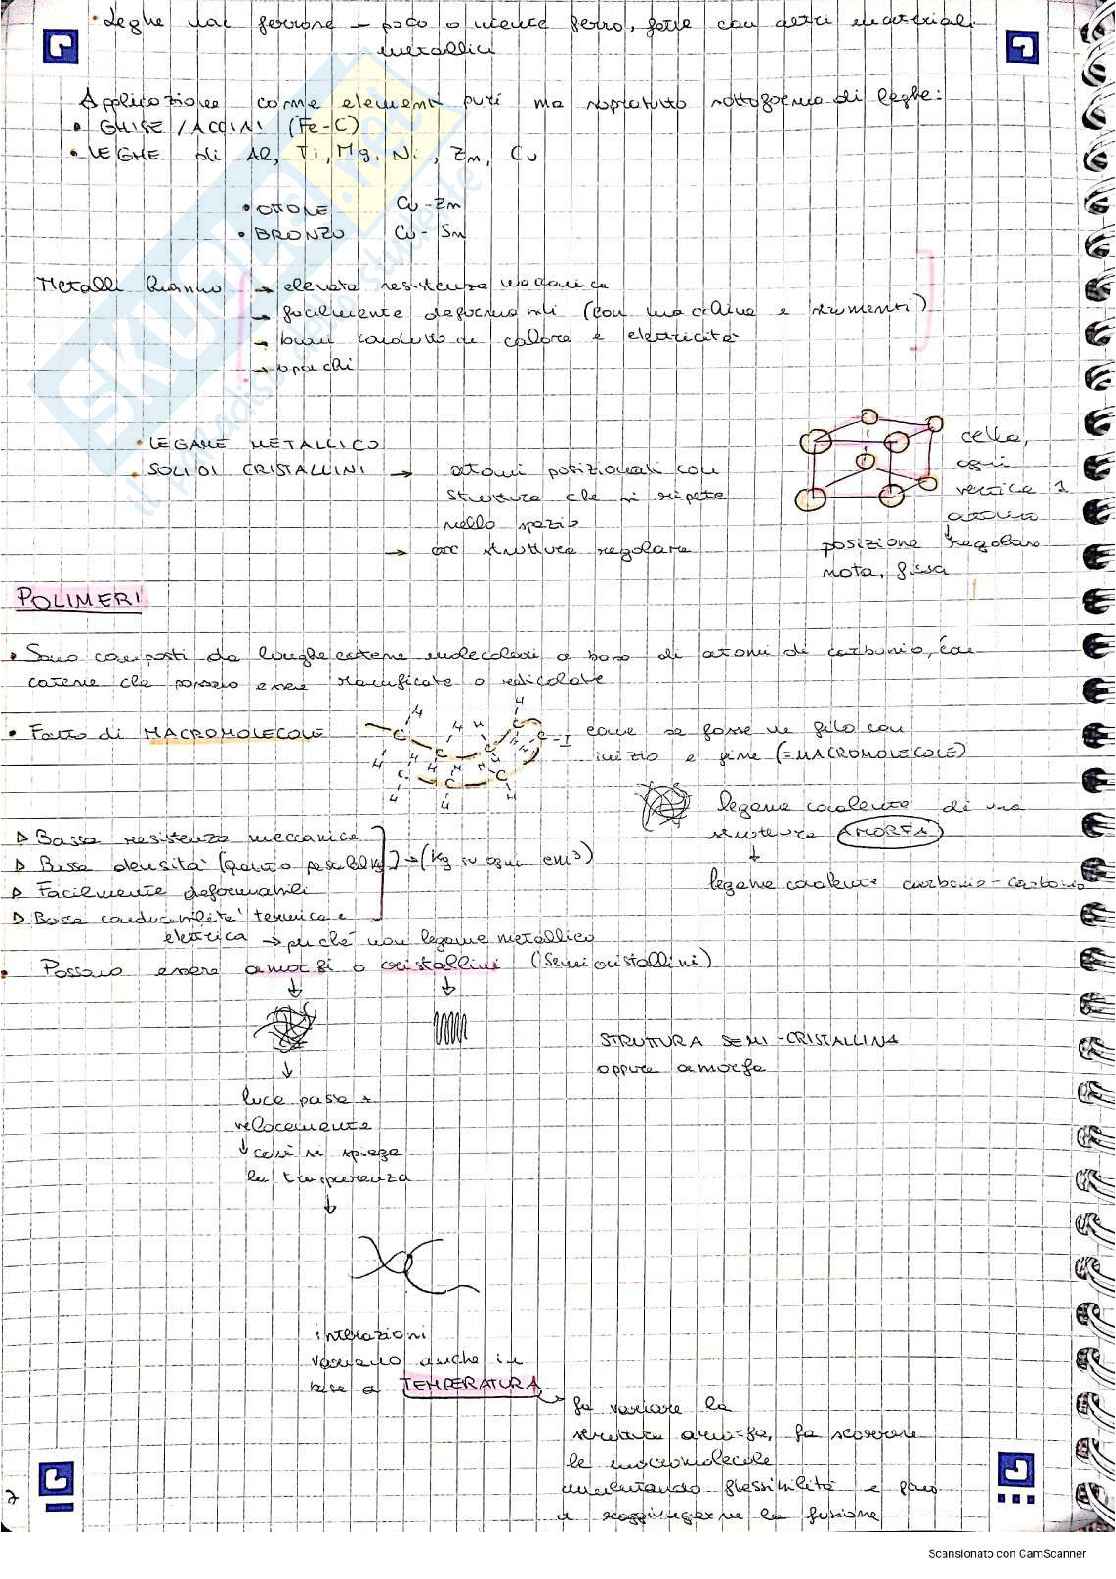 • Leghe non ferrose – poco o niente ferro, fatte con altri materiali
metallici
Applicazione come elementi puri ma sopratutto sottoforma di leghe:
• GHISE / ACCIAI (Fe-C)
• LEGHE di Al, Ti, Mg, Ni, Zn, Cu
• OTTONE Cu-Zn
• BRONZO Cu-Sn
Metalli hanno → elevata resistenza meccanica
→ facilmente deformabili (con macchine e strumenti)
→ buoni conduttori di calore e elettricità
→ opachi
• LEGAME METALLICO
• SOLIDI CRISTALLINI → atomi posizionati con
struttura che si ripete
nello spazio
→ struttura regolare
cella,
ogni
vertice 1
atomo
↓
posizione regolare
nota, fissa
POLIMERI
• Sono composti da lunghe catene molecolari a base di atomi di carbonio, con
catene che possono essere ramificate o reticolate
• Fatto di MACROMOLECOLE
H H H H C C C C C C C H H H H H H H
come se fosse un filo con
inizio e fine (=MACROMOLECOLE)
legame covalente di una
struttura AMORFA
↓
legame covalente carbonio-carbonio
▷ Bassa resistenza meccanica
▷ Bassa densità (quanto pesa 1 kg) → (kg su ogni cm³)
▷ Facilmente deformabili
▷ Bassa conducibilità termica e
elettrica → perché non legame metallico
• Possono essere amorfi o cristallini (semicristallini)
↓ ↓
STRUTTURA SEMI-CRISTALLINA
oppure amorfa
↓
luce passa +
velocemente
↓ così si spiega
la trasparenza
↓
interazioni
variano anche in
base a TEMPERATURA
→ fa variare la
struttura amorfa, fa scorrere
le macromolecole
aumentando flessibilità e fino
a raggiungerne la fusione
2
Scansionato con CamScanner
SKUOLA.net